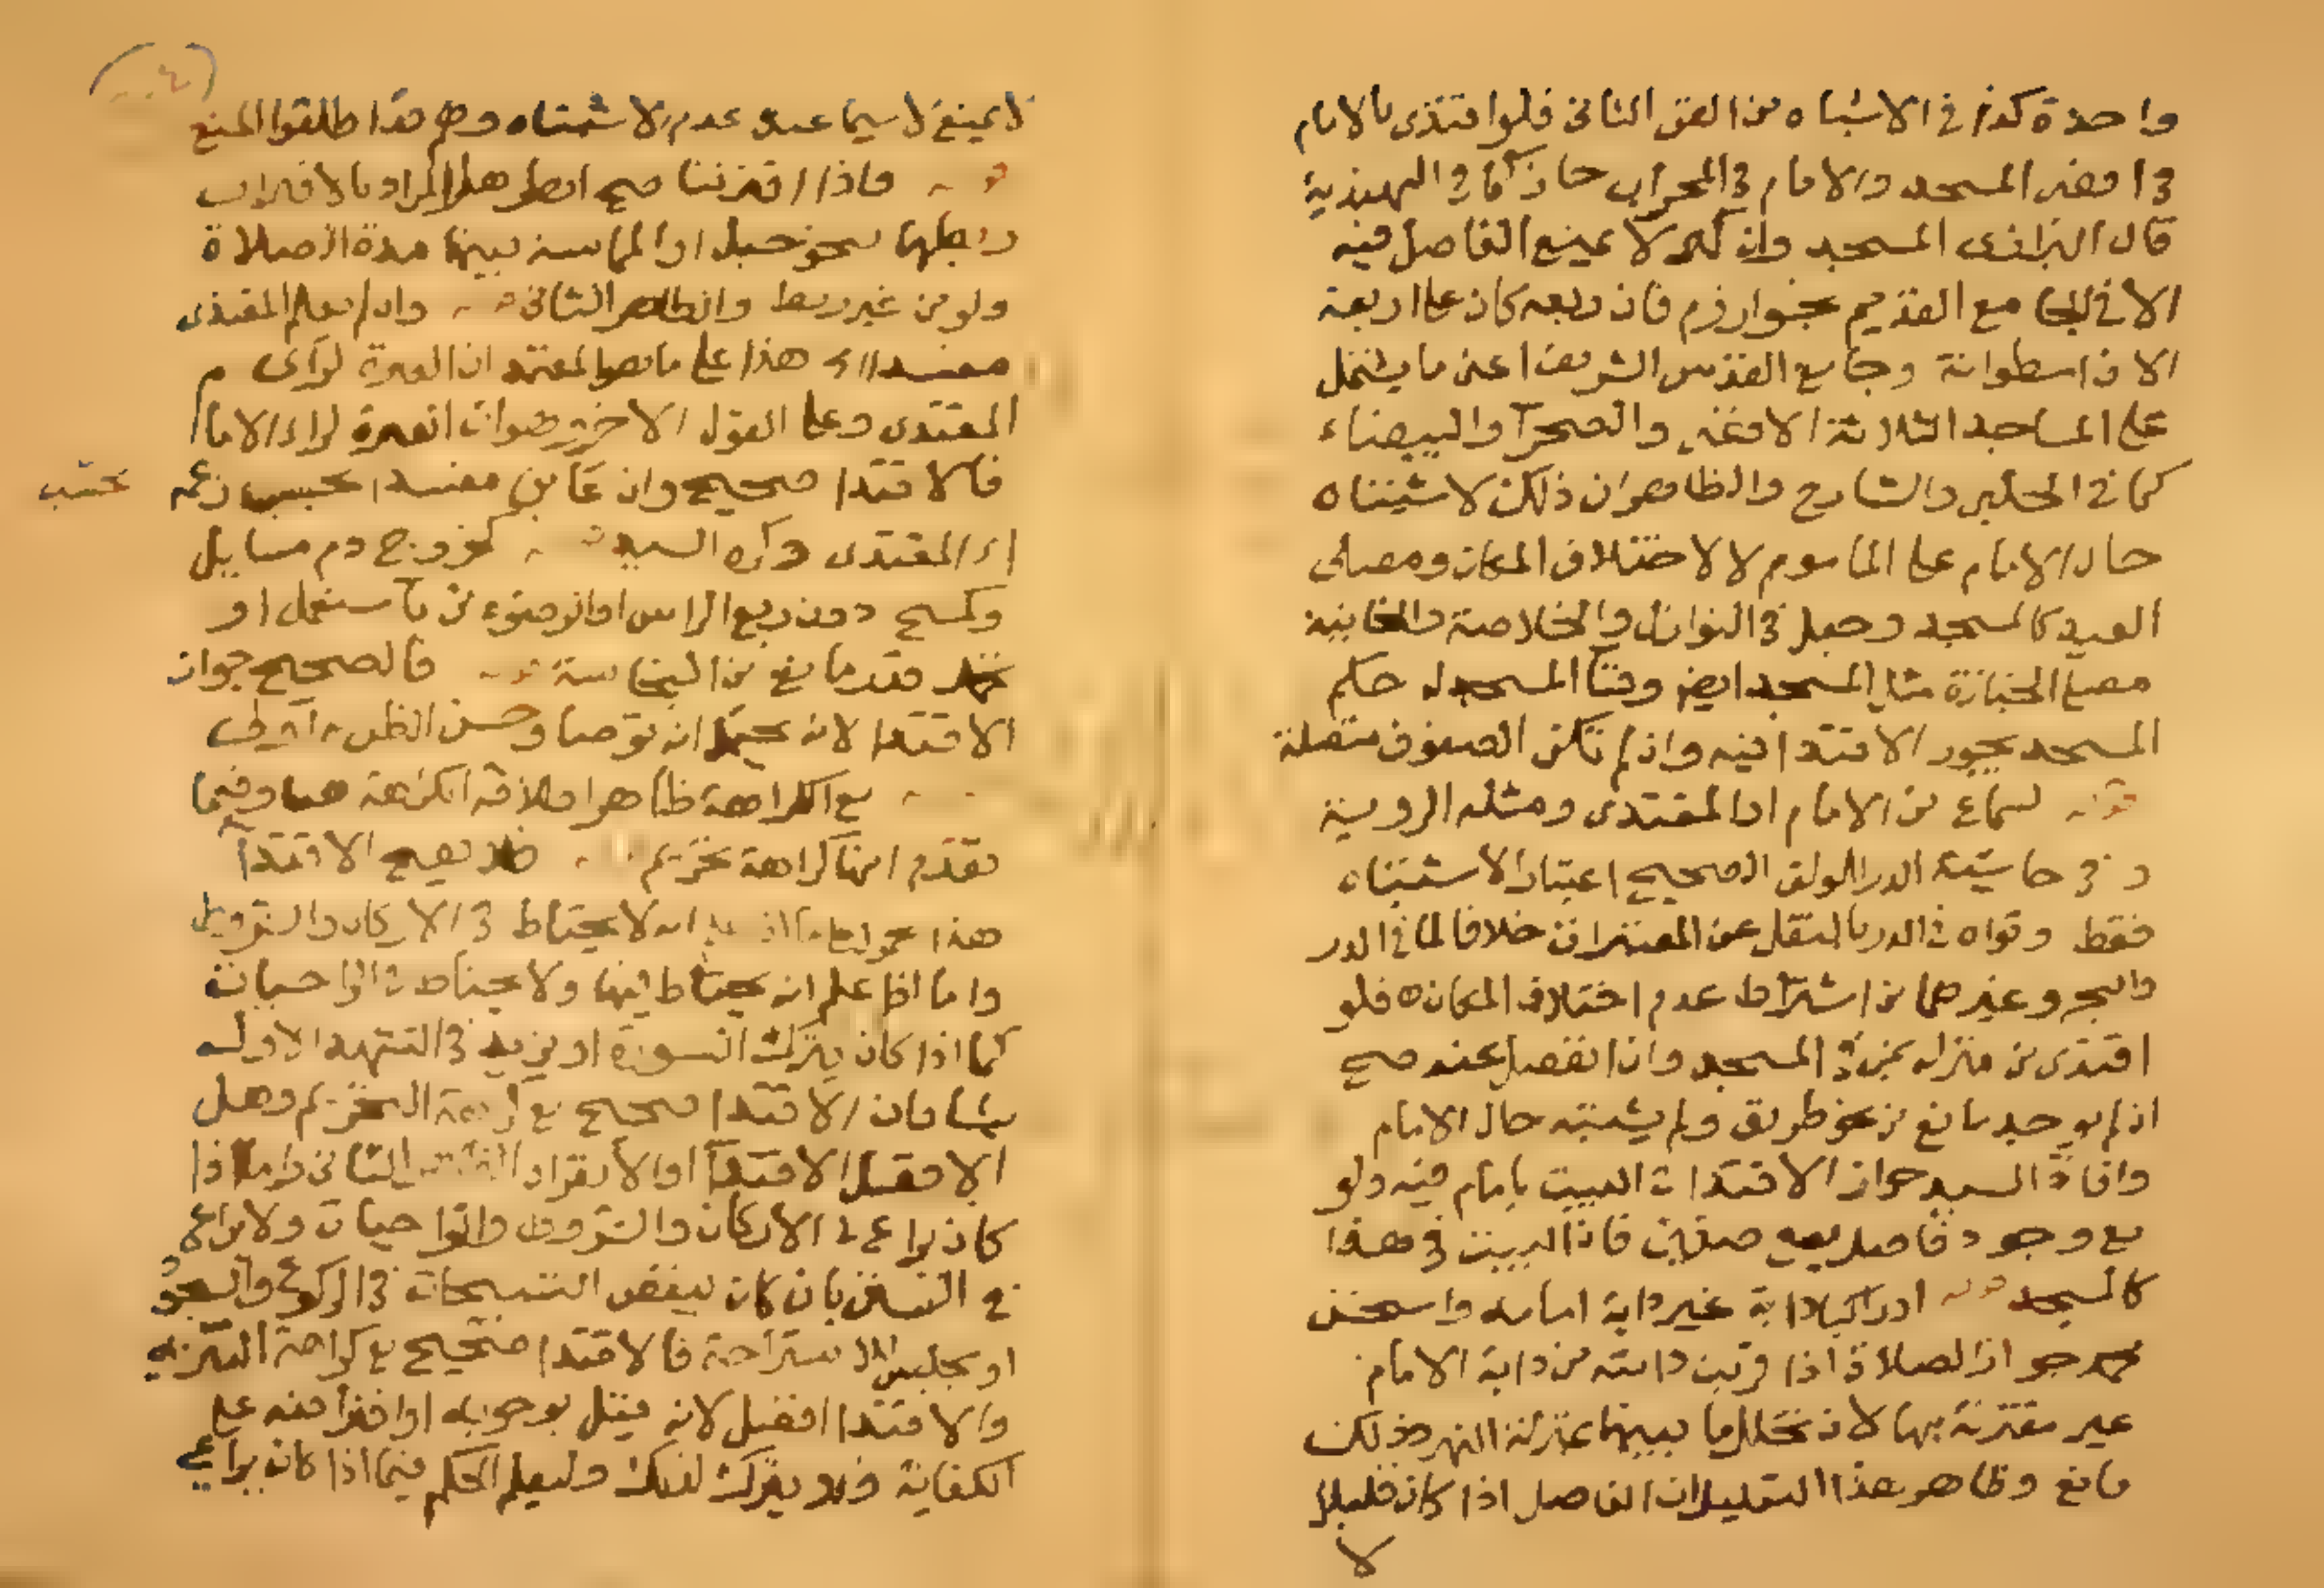 واحدة كذا في الاشباه من الفن الثاني فلو اقتدى بالامام
في اقصى المسجد والامام في المحراب جاز كما في الهندية
قال البزازى المسجد وان كبر لا يمنع الفاصل فيه
الا في الجامع القديم بخوارزم فان ربعه كان على اربعة
الاف اسطوانة وجامع القدس الشريف اعنى ما يشتمل
على المساجد الثلاثة الاقصى والصخرا والبيضاء
كما في الحلبى والشارح والظاهر ان ذلك لاشتباه
حال الامام على الماموم لا لاختلاف المكان ومصلى
العيد كالمسجد وجعل في النوازل والخلاصة والخانية
مصلى الجنازة مثل المسجد ايضا وفنا المسجد له حكم
المسجد يجوز الاقتدا فيه وان لم تكن الصفوف متصلة
قوله لسماع من الامام او المقتدى ومثله الروية
وفى حاشية الدر للمولف الصحيح اعتبار الاشتباه
فقط وقواه في الدر بالنقل عن المعتبرات خلافا لما في الدر
والبحر وغيرهما من اشتراط عدم اختلاف المكان فلو
اقتدى من منزله بمن في المسجد وان انفصل عنه صح
ان لم يوجد مانع من نحو طريق ولم يشتبه حال الامام
وافاد السيد جواز الاقتدا في البيت بامام فيه ولو
مع وجود فاصل يسع صفين فان البيت في هذا
كالمسجد قوله او راكبا دابة غير دابة امامه واستحسن
محمد جواز الصلاة اذا قربت دابته من دابة الامام
غير مقترنة بها لان تخلل ما بينهما بمنزلة النهر وذلك
مانع وظاهر هذا التعليل ان الفاصل اذا كان قليلا
لا
لا يمنع لا سيما عند عدم الاشتباه وهم قد اطلقوا المنع
قوله فاذا اقترنتا صح انظر هل المراد بالاقتران
ربطهما بنحو حبل او المماسة بينهما مدة الصلاة
ولو من غير ربط والظاهر الثانى قوله وان لم يعلم المقتدى
مفسدا هذا على ما هو المعتمد ان العبرة لراى
المقتدى وعلى القول الاخر وهو ان العبرة لراى الامام
فالاقتدا صحيح وان عاين مفسدا بحسب زعمه
اى المقتدى ذكره السيد قوله كخروج دم سايل
وكمسح دون ربع الراس او الوضوء من ما مستعمل او
تحمل قدر مانع من النجاسة قوله فالصحيح جواز
الاقتدا لانه يحتمل انه توضا وحسن الظن به اولى
قوله مع الكراهة ظاهر اطلاقه الكراهة هنا وفيما
تقدم انها كراهة تحريم قوله فلا يصح الاقتدا
هذا انه لا يحتاط في الاركان والشروط
واما اذا علم انه يحتاط فيها ولا يحتاط في الواجبات
كما اذا كان يترك السورة او يزيد في التشهد الاول
شيا فان الاقتدا صحيح مع كراهة التحريم وهل
الافضل الاقتدا او الانفراد الثانى واما اذا
كان يراعى الاركان والشروط والواجبات ولا يراعى
السنن بان كان ينقص التسبيحات في الركوع والسجود
او يجلس للاستراحة فالاقتدا صحيح مع كراهة التنزيه
والاقتدا افضل لانه قيل بوجوبه او افتراضه على
الكفاية فلا يترك لذلك وليعلم الحكم فيما اذا كان يراعى